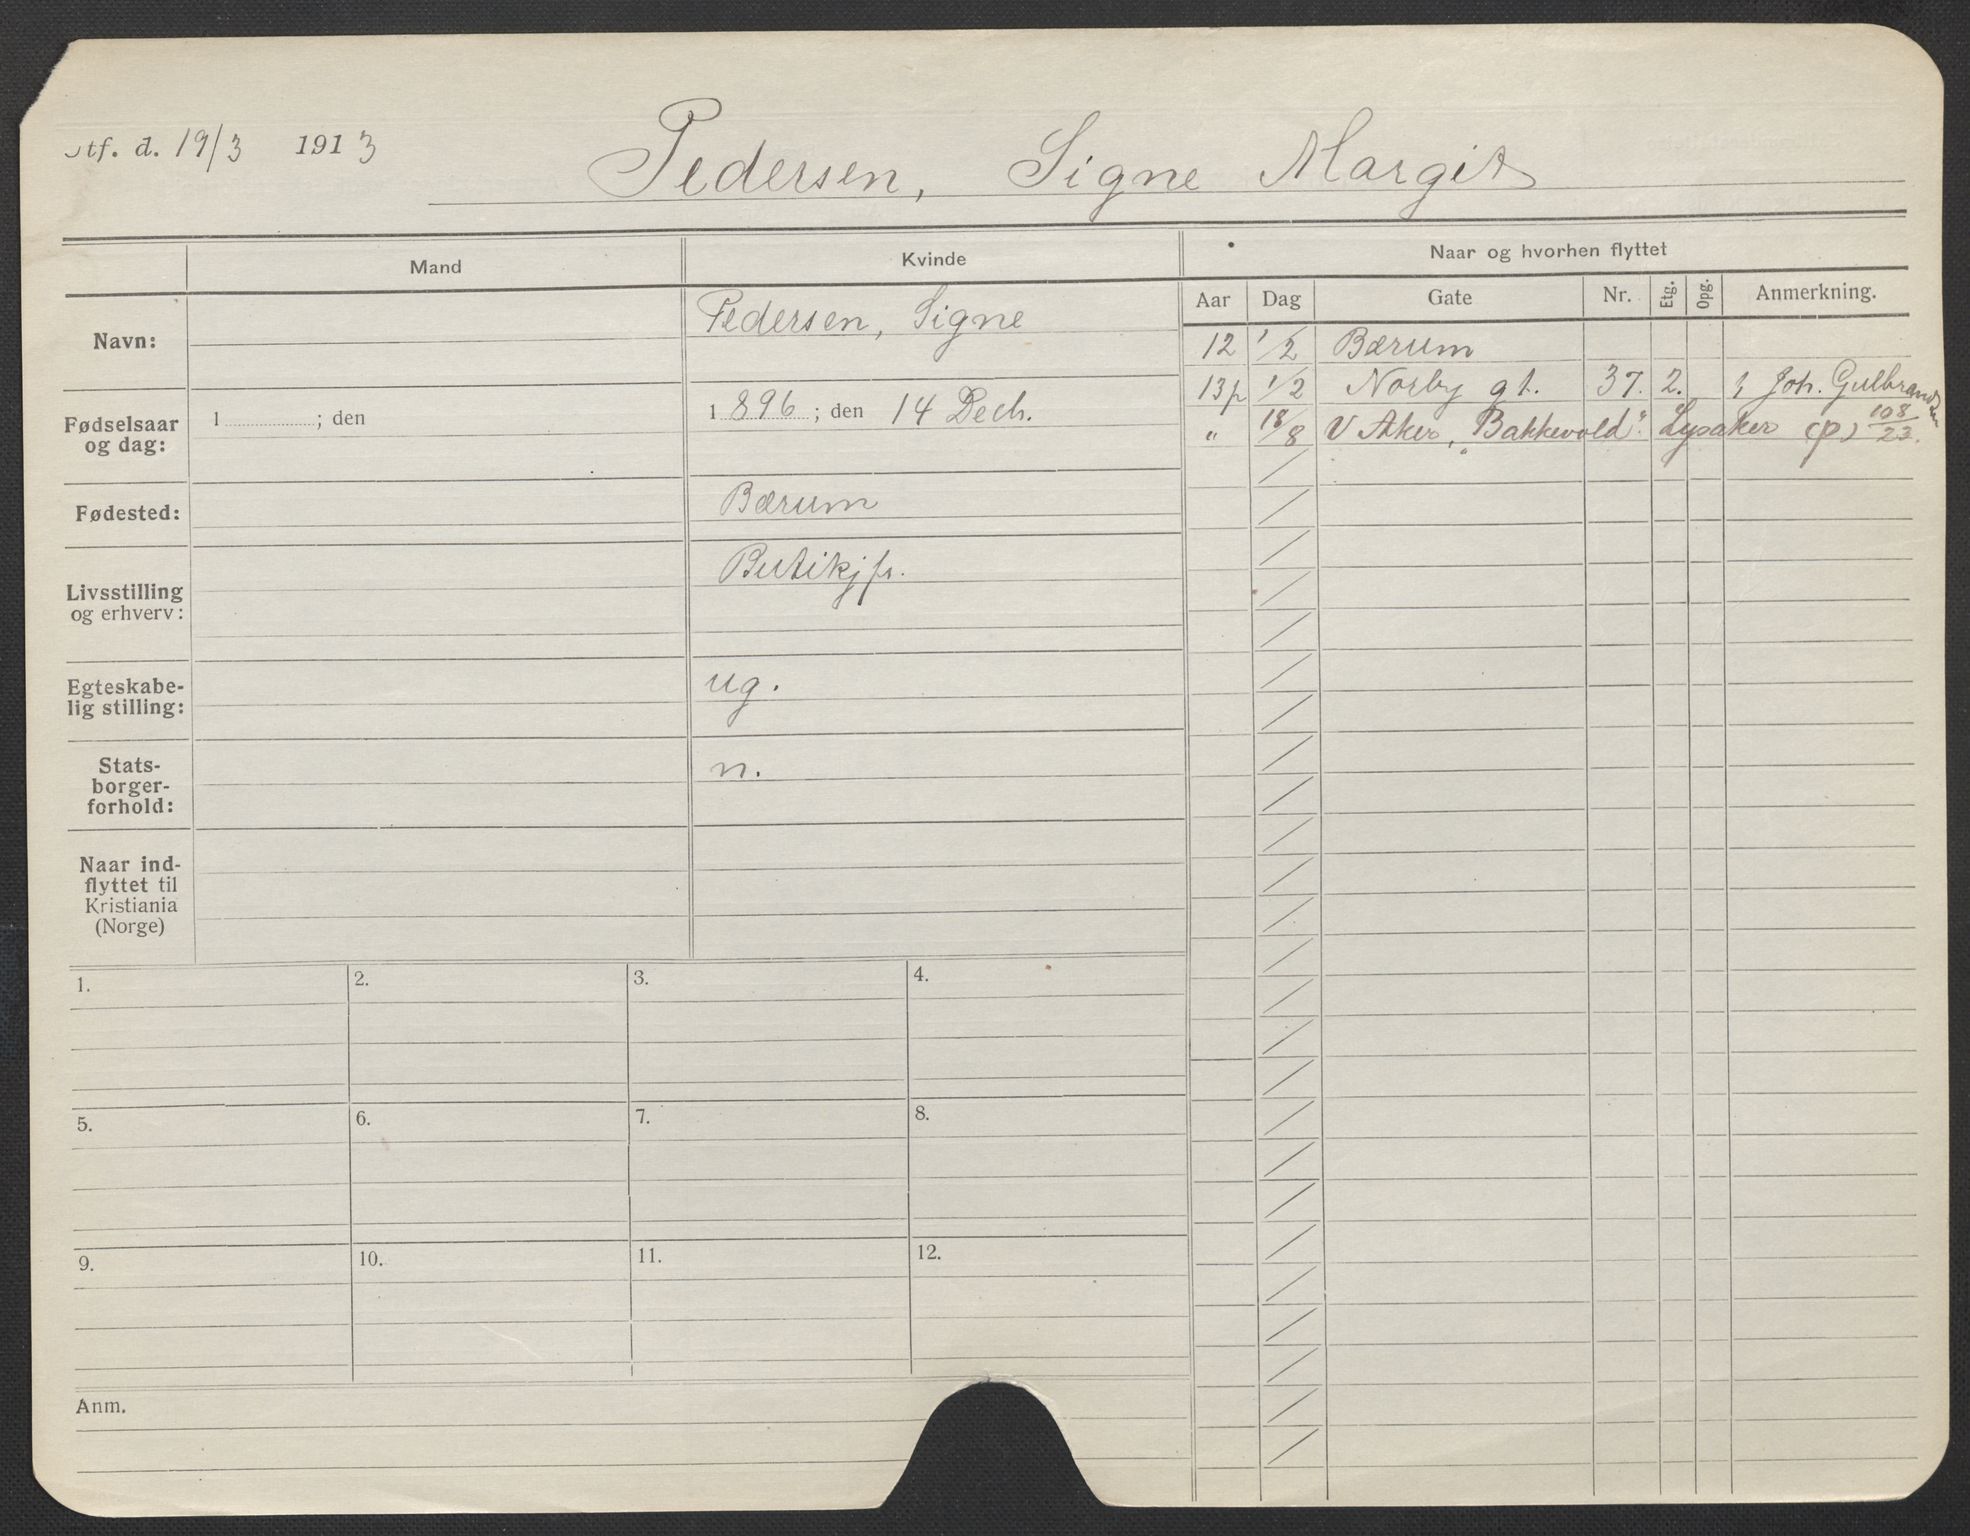 tf. d. 19/3 1913
Pedersen, Signe Margit
Mand
Kvinde
Naar og hvorhen flyttet
Aar Dag Gate Nr. Etg. Opg. Anmerkning.
Navn:
Pedersen, Signe
12 1/2 Bærum
13p 1/2 Norby gt. 37. 2. Joh. Gulbrandsen
" 18/8 V Aker, "Bakkevold" Lysaker (p) 108/23.
Fødselsaar
og dag:
1 ; den
1896 ; den 14 Decb.
Fødested:
Bærum
Livsstilling
og erhverv:
Butikjfr.
Egteskabe-
lig stilling:
ug.
Stats-
borger-
forhold:
n.
Naar ind-
flyttet til
Kristiania
(Norge)
1. 2. 3. 4.
5. 6. 7. 8.
9. 10. 11. 12.
Anm.